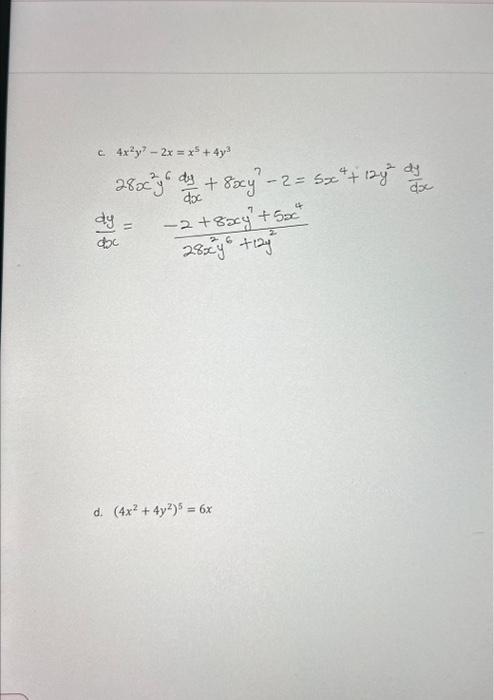 c. 4x²y⁷ − 2x = x⁵ + 4y³
28x²y⁶ dy/dx + 8xy⁷ − 2 = 5x⁴ + 12y² dy/dx
dy/dx = (−2 + 8xy⁷ + 5x⁴)/(28x²y⁶ + 12y²)
d. (4x² + 4y²)⁵ = 6x